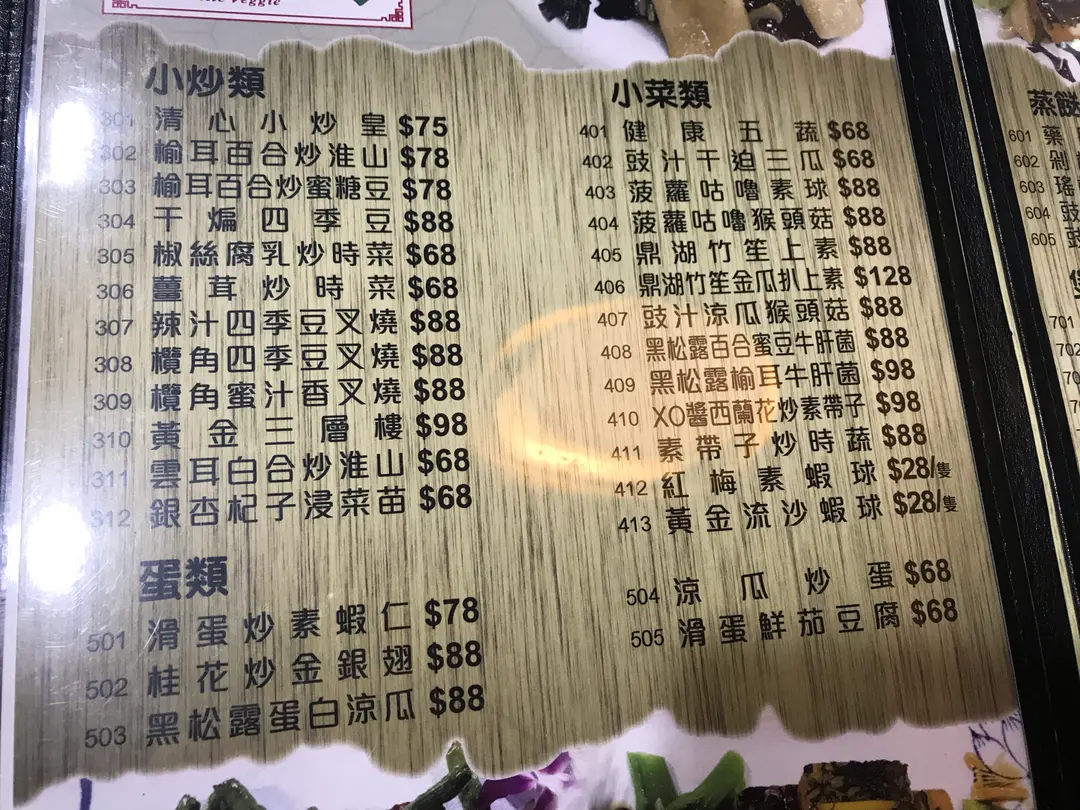 veggie
小炒類
301 清心小炒皇 $75
302 榆耳百合炒淮山 $78
303 榆耳百合炒蜜糖豆 $78
304 干煸四季豆 $88
305 椒絲腐乳炒時菜 $68
306 薑茸炒時菜 $68
307 辣汁四季豆叉燒 $88
308 欖角四季豆叉燒 $88
309 欖角蜜汁香叉燒 $88
310 黃金三層樓 $98
311 雲耳白合炒淮山 $68
312 銀杏杞子浸菜苗 $68
蛋類
501 滑蛋炒素蝦仁 $78
502 桂花炒金銀翅 $88
503 黑松露蛋白涼瓜 $88
小菜類
401 健康五蔬 $68
402 豉汁干迫三瓜 $68
403 菠蘿咕嚕素球 $88
404 菠蘿咕嚕猴頭菇 $88
405 鼎湖竹笙上素 $88
406 鼎湖竹笙金瓜扒上素 $128
407 豉汁涼瓜猴頭菇 $88
408 黑松露百合蜜豆牛肝菌 $88
409 黑松露榆耳牛肝菌 $98
410 XO醬西蘭花炒素帶子 $98
411 素帶子炒時蔬 $88
412 紅梅素蝦球 $28/隻
413 黃金流沙蝦球 $28/隻
504 涼瓜炒蛋 $68
505 滑蛋鮮茄豆腐 $68
蒸
601 藥
602 剁
603 瑤
604 豉
605 豉
701
702